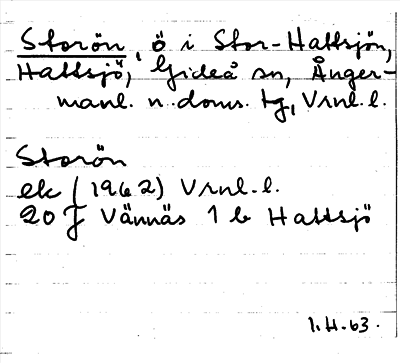 Storön, ö i Stor-Hattsjön,
Hattsjö, Gideå sn, Ånger-
manl. n. doms. tg, Vrnl. l.
Storön
ek (1962) Vrnl. l.
20 J Vännäs 1 b Hattsjö
1.H.63.